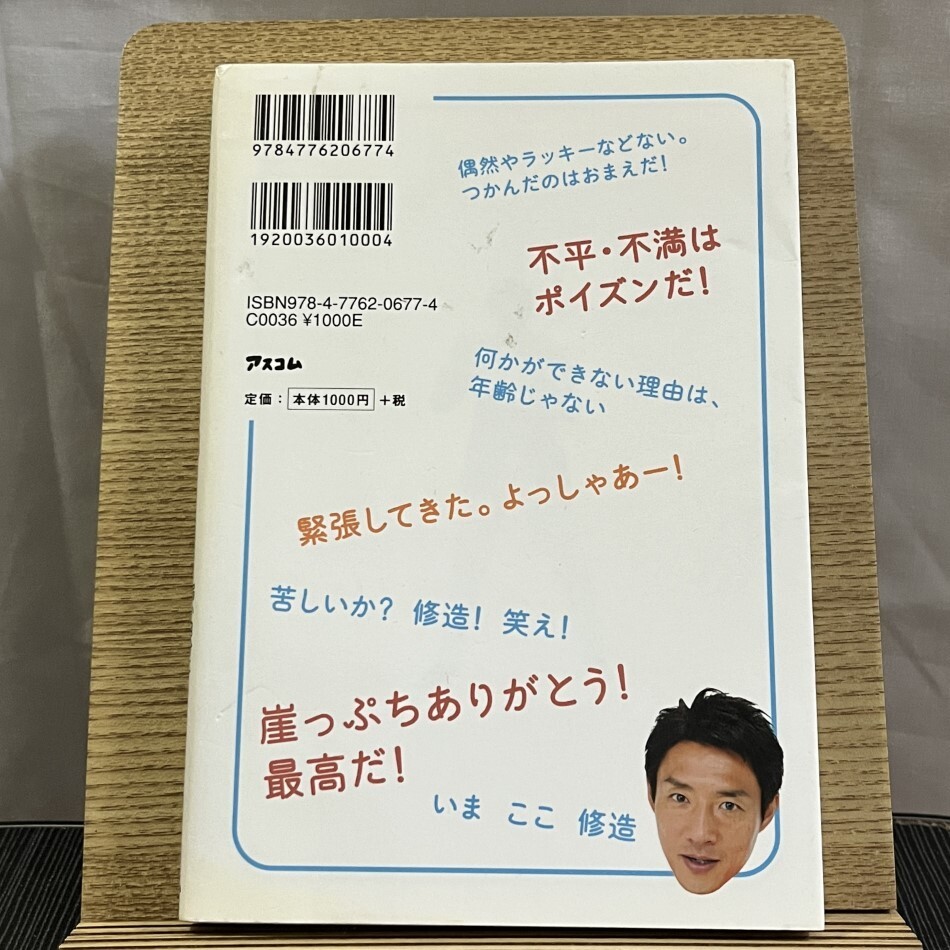 9784776206774
1920036010004
ISBN978-4-7762-0677-4
C0036 ¥1000E
アスコム
定価：本体1000円＋税
偶然やラッキーなどない。
つかんだのはおまえだ！
不平・不満は
ポイズンだ！
何かができない理由は、
年齢じゃない
緊張してきた。よっしゃあー！
苦しいか？ 修造！ 笑え！
崖っぷちありがとう！
最高だ！
いま ここ 修造